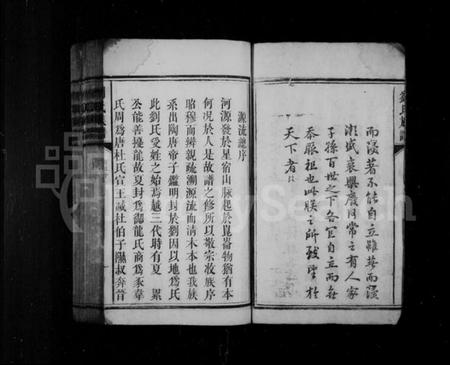 劉氏族譜
而後著不能自立雖美而後
漸盛衰興廢何常之有人家
子孫百世之下各宜自立而每
忝厥祖也此朕之所致望於
天下者
源流總序
河源發於星宿山脈起於崑崙物猶有本
何況於人是故譜之修所以敬宗收族序
昭穆而辨親疏溯源流而清木本也我族
系出陶唐帝子鑑明封於劉因以地為氏
此劉氏受姓之始焉越三代時有夏 累
公能善擾龍故夏封為御龍氏商為豕韋
氏周為唐杜氏宣王滅杜伯子隰叔奔晉